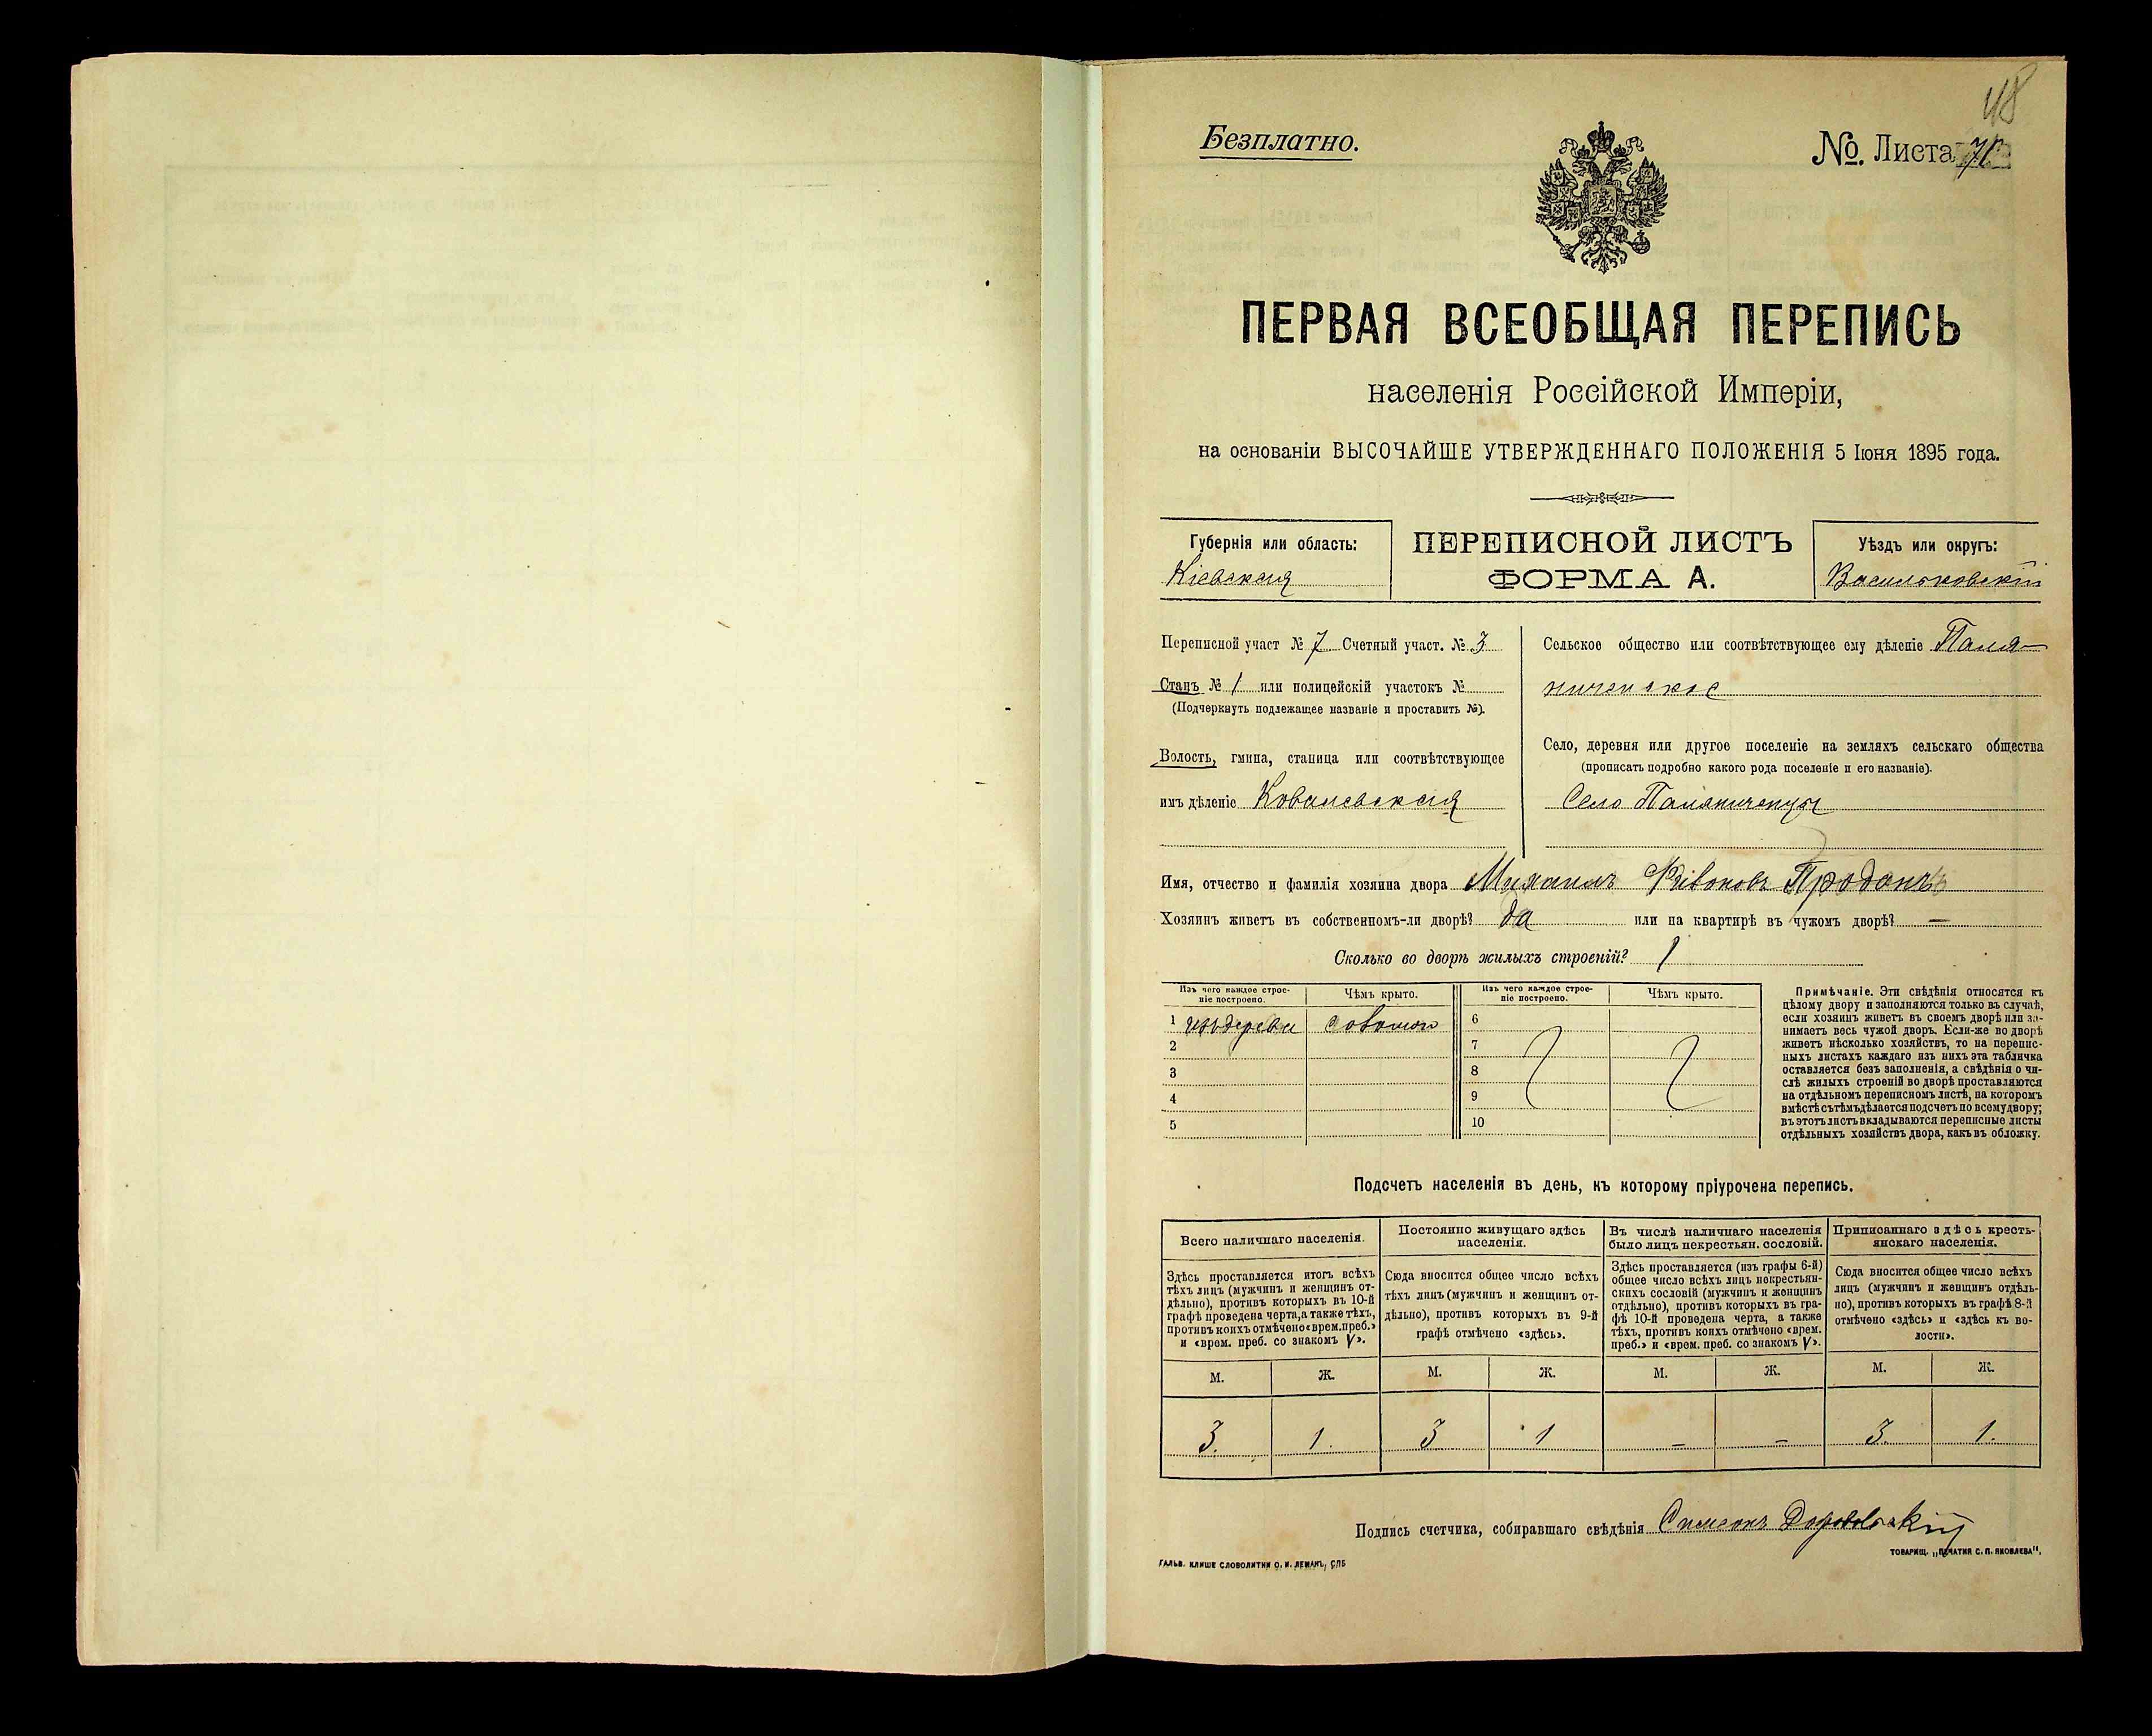 48
Безплатно.
№. Листа 71
ПЕРВАЯ ВСЕОБЩАЯ ПЕРЕПИСЬ
населенія Россійской Имперіи,
на основаніи ВЫСОЧАЙШЕ УТВЕРЖДЕННАГО ПОЛОЖЕНІЯ 5 Іюня 1895 года.
Губернія или область:
Кіевская
ПЕРЕПИСНОЙ ЛИСТЪ
ФОРМА А.
Уѣздъ или округъ:
Васильковскій
Переписной участ № 7 Счетный участ. № 3
Станъ № 1 или полицейскій участокъ №
(Подчеркнуть подлежащее названіе и проставить №).
Волость, гмина, станица или соотвѣтствующее
имъ дѣленіе Ковалевская
Сельское общество или соотвѣтствующее ему дѣленіе Паля-
ниченское
Село, деревня или другое поселеніе на земляхъ сельскаго общества
(прописать подробно какого рода поселеніе и его названіе).
Село Паляниченцы
Имя, отчество и фамилія хозяина двора Михаилъ Проданъ
Хозяинъ живетъ въ собственномъ-ли дворѣ? да или на квартирѣ въ чужомъ дворѣ? —
Сколько во дворѣ жилыхъ строеній? 1
Изъ чего каждое строе-
ніе построено.
Чѣмъ крыто.
Изъ чего каждое строе-
ніе построено.
Чѣмъ крыто.
1 изъ дерева соломою
2
3
4
5
6
7
8
9
10
Примѣчаніе. Эти свѣдѣнія относятся къ
цѣлому двору и заполняются только въ случаѣ,
если хозяинъ живетъ въ своемъ дворѣ или за-
нимаетъ весь чужой дворъ. Если-же во дворѣ
живетъ нѣсколько хозяйствъ, то на перепис-
ныхъ листахъ каждаго изъ нихъ эта табличка
оставляется безъ заполненія, а свѣдѣнія о чи-
слѣ жилыхъ строеній во дворѣ проставляются
на отдѣльномъ переписномъ листѣ, на которомъ
вмѣстѣ съ тѣмъ дѣлается подсчетъ по всему двору;
въ этотъ листъ вкладываются переписные листы
отдѣльныхъ хозяйствъ двора, какъ въ обложку.
Подсчетъ населенія въ день, къ которому пріурочена перепись.
Всего наличнаго населенія.
Здѣсь проставляется итогъ всѣхъ
тѣхъ лицъ (мужчинъ и женщинъ от-
дѣльно), противъ которыхъ въ 10-й
графѣ проведена черта, а также тѣхъ,
противъ коихъ отмѣчено «врем. преб.»
и «врем. преб. со знакомъ V».
Постоянно живущаго здѣсь
населенія.
Сюда вносится общее число всѣхъ
тѣхъ лицъ (мужчинъ и женщинъ от-
дѣльно), противъ которыхъ въ 9-й
графѣ отмѣчено «здѣсь».
Въ числѣ наличнаго населенія
было лицъ некрестьян. сословій.
Здѣсь проставляется (изъ графы 6-й)
общее число всѣхъ лицъ некрестьян-
скихъ сословій (мужчинъ и женщинъ
отдѣльно), противъ которыхъ въ гра-
фѣ 10-й проведена черта, а также
тѣхъ, противъ коихъ отмѣчено «врем.
преб.» и «врем. преб. со знакомъ V».
Приписаннаго здѣсь кресть-
янскаго населенія.
Сюда вносится общее число всѣхъ
лицъ (мужчинъ и женщинъ отдѣль-
но), противъ которыхъ въ графѣ 8-й
отмѣчено «здѣсь» и «здѣсь къ во-
лости».
М. Ж. М. Ж. М. Ж. М. Ж.
3. 1. 3 1 – – 3. 1.
Подпись счетчика, собиравшаго свѣдѣнія Симеонъ
ГАЛЬВ. КЛИШЕ СЛОВОЛИТНИ О. И. ЛЕМАНЪ, СПБ
ТОВАРИЩ. „ПЕЧАТНЯ С. П. ЯКОВЛЕВА“.